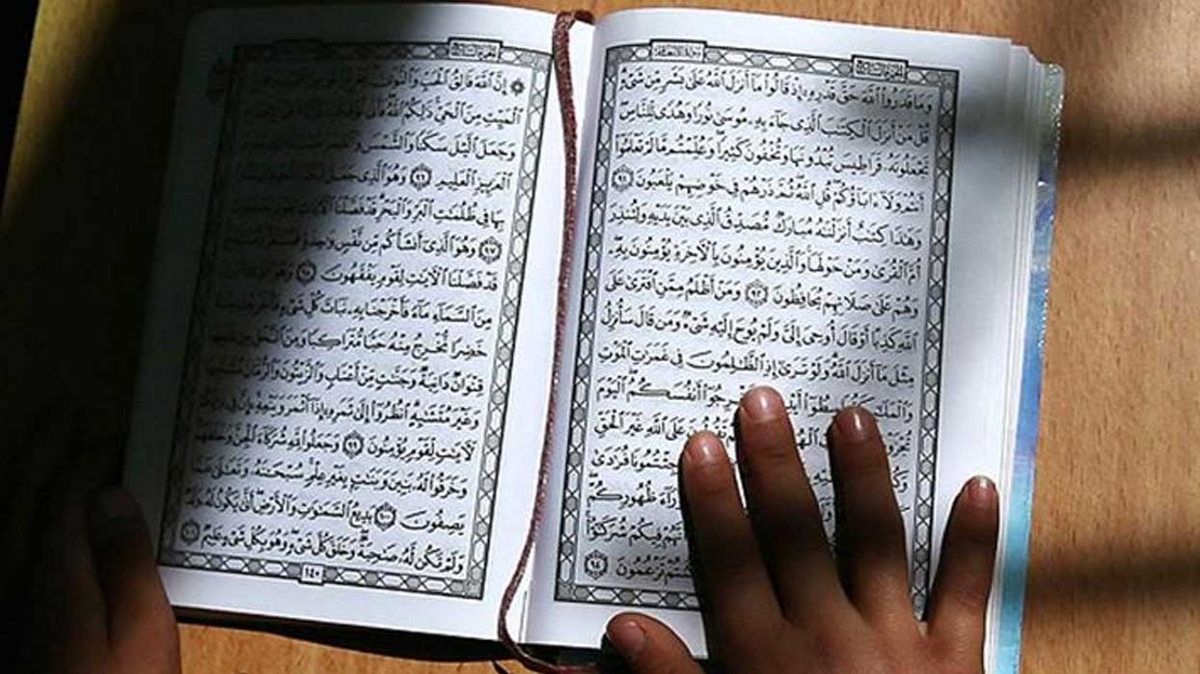 سُورَةُ الأَنْعَامِ الجُزْءُ السَّابِعُ
وَمَا قَدَرُوا اللَّهَ حَقَّ قَدْرِهِ إِذْ قَالُوا مَا أَنزَلَ اللَّهُ عَلَىٰ بَشَرٍ مِّن شَىْءٍ
قُلْ مَنْ أَنزَلَ الْكِتَٰبَ الَّذِى جَآءَ بِهِ مُوسَىٰ نُورًا وَهُدًى لِّلنَّاسِ
تَجْعَلُونَهُ قَرَاطِيسَ تُبْدُونَهَا وَتُخْفُونَ كَثِيرًا وَعُلِّمْتُم مَّا لَمْ تَعْلَمُوا
أَنتُمْ وَلَآ ءَابَآؤُكُمْ قُلِ اللَّهُ ثُمَّ ذَرْهُمْ فِى خَوْضِهِمْ يَلْعَبُونَ ٩١
وَهَٰذَا كِتَٰبٌ أَنزَلْنَٰهُ مُبَارَكٌ مُّصَدِّقُ الَّذِى بَيْنَ يَدَيْهِ وَلِتُنذِرَ
أُمَّ الْقُرَىٰ وَمَنْ حَوْلَهَا وَالَّذِينَ يُؤْمِنُونَ بِالْآخِرَةِ يُؤْمِنُونَ بِهِ
وَهُمْ عَلَىٰ صَلَاتِهِمْ يُحَافِظُونَ ٩٢ وَمَنْ أَظْلَمُ مِمَّنِ افْتَرَىٰ عَلَى
اللَّهِ كَذِبًا أَوْ قَالَ أُوحِىَ إِلَىَّ وَلَمْ يُوحَ إِلَيْهِ شَىْءٌ وَمَن قَالَ سَأُنزِلُ
مِثْلَ مَآ أَنزَلَ اللَّهُ وَلَوْ تَرَىٰ إِذِ الظَّٰلِمُونَ فِى غَمَرَٰتِ الْمَوْتِ
أَنفُسَكُمُ الْيَوْمَ
عَلَى اللَّهِ غَيْرَ الْحَقِّ
جِئْتُمُونَا فُرَٰدَىٰ
ظُهُورِكُمْ
فِيكُمْ شُرَكَٰٓؤُا
تَزْعُمُونَ ٩٤
الجُزْءُ السَّابِعُ
إِنَّ اللَّهَ فَالِقُ الْحَبِّ وَالنَّوَىٰ
الْمَيِّتِ مِنَ الْحَىِّ ذَٰلِكُمُ اللَّهُ فَأَنَّىٰ تُؤْفَكُونَ
وَجَعَلَ الَّيْلَ سَكَنًا وَالشَّمْسَ
الْعَزِيزِ الْعَلِيمِ ٩٦ وَهُوَ الَّذِى جَعَلَ
بِهَا فِى ظُلُمَٰتِ الْبَرِّ وَالْبَحْرِ قَدْ فَصَّلْنَا الْآيَٰتِ
٩٧ وَهُوَ الَّذِى أَنشَأَكُم مِّن نَّفْسٍ وَٰحِدَةٍ
قَدْ فَصَّلْنَا الْآيَٰتِ لِقَوْمٍ يَفْقَهُونَ ٩٨ وَهُوَ
مِنَ السَّمَآءِ مَآءً فَأَخْرَجْنَا بِهِ نَبَاتَ كُلِّ شَىْءٍ
خَضِرًا نُّخْرِجُ مِنْهُ حَبًّا مُّتَرَاكِبًا وَمِنَ النَّخْلِ
قِنْوَانٌ دَانِيَةٌ وَجَنَّٰتٍ مِّنْ أَعْنَابٍ وَالزَّيْتُونَ وَالرُّمَّانَ
وَغَيْرَ مُتَشَٰبِهٍ انظُرُوا إِلَىٰ ثَمَرِهِ إِذَآ أَثْمَرَ وَيَنْعِهِ إِنَّ فِى
لَآيَٰتٍ لِّقَوْمٍ يُؤْمِنُونَ ٩٩ وَجَعَلُوا لِلَّهِ شُرَكَآءَ الْجِنَّ وَخَلَقَهُمْ
وَخَرَقُوا لَهُ بَنِينَ وَبَنَٰتٍ بِغَيْرِ عِلْمٍ سُبْحَٰنَهُ وَتَعَٰلَىٰ عَمَّا
يَصِفُونَ ١٠٠ بَدِيعُ السَّمَٰوَٰتِ وَالْأَرْضِ أَنَّىٰ يَكُونُ لَهُ وَلَدٌ
وَلَمْ تَكُن لَّهُ صَٰحِبَةٌ وَخَلَقَ كُلَّ شَىْءٍ وَهُوَ بِكُلِّ شَىْءٍ عَلِيمٌ ١٠١
١٤٠